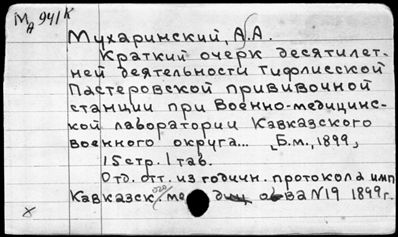 МА 941К
Мухаринский, А.А.
Краткий очерк десятилет-
ней деятельности Тифлисской
Пастеровской прививочной
станции при Военно-медицинс-
кой лаборатории Кавказского
военного округа... [Б.м., 1899]
15 стр. 1 таб.
Отд. отт. из годичн. протокола имп
Кавказск. мед о-ва №19 1899г.